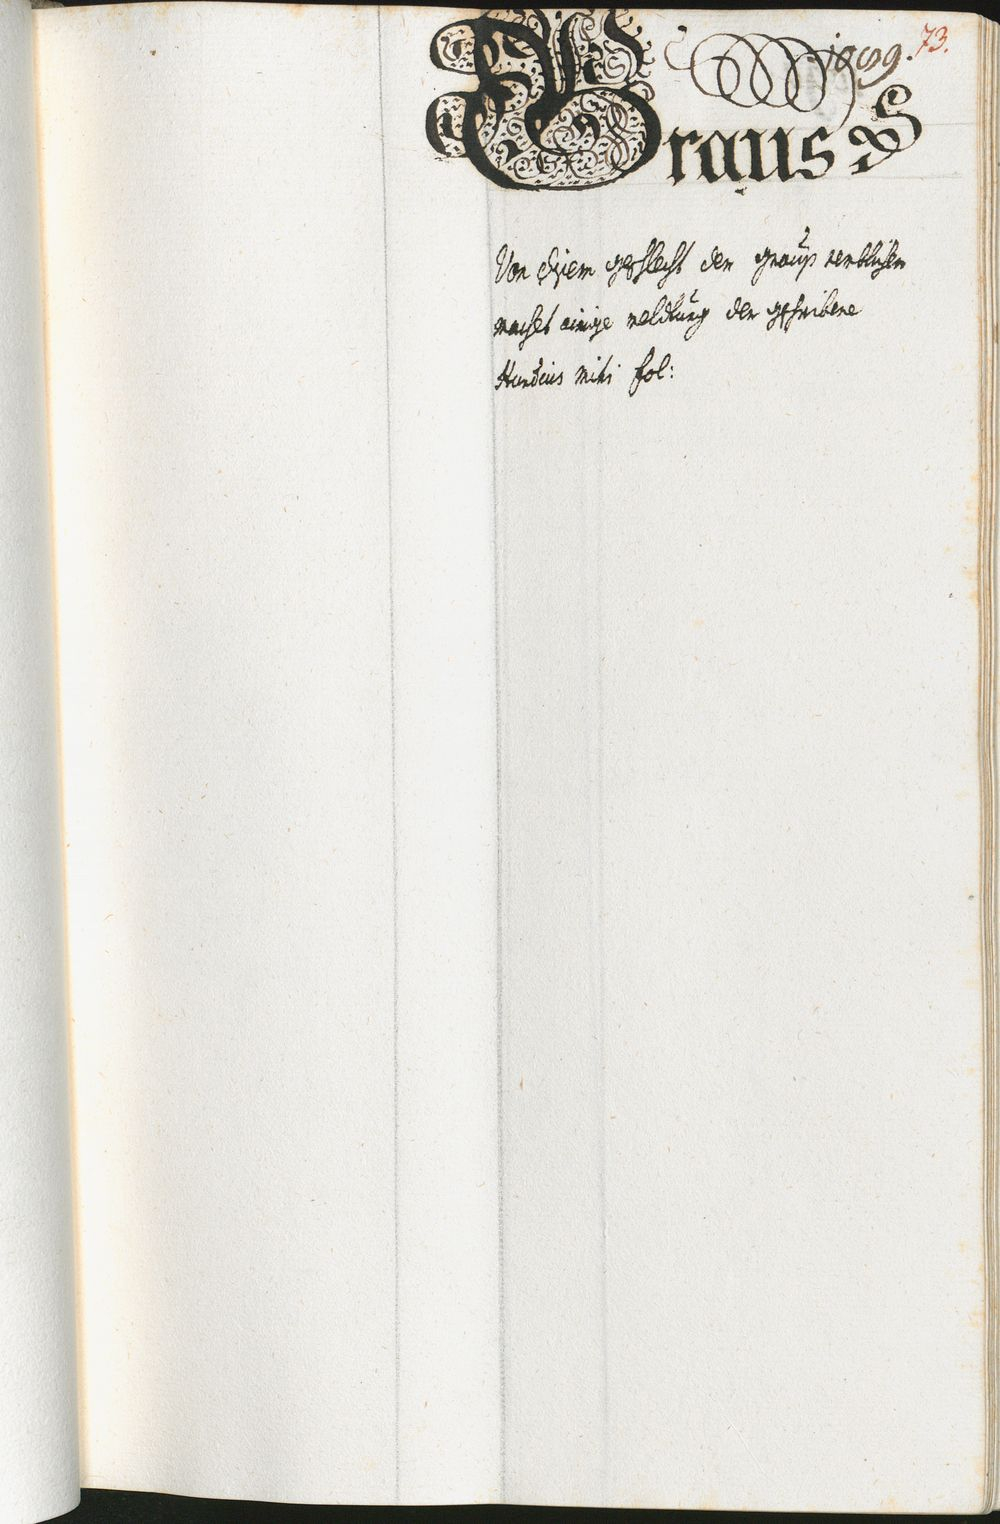 1099. 73.
Graus
Von disem geschlecht der grauß
machet einige meldung der geschribene
Hundius mihi fol: